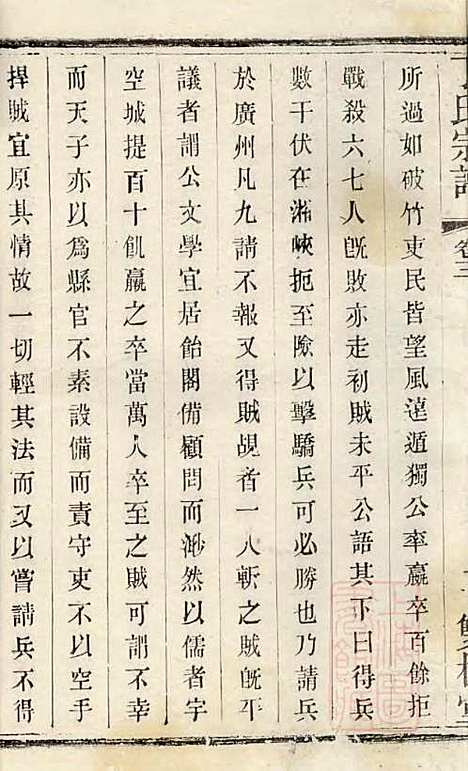 氏宗譜 卷三
所過如破竹吏民皆望風遠遁獨公率羸卒百餘拒
戰殺六七人旣敗亦走初賊未平公語其下曰得兵
數千伏在湍峽扼至險以擊驕兵可必勝也乃請兵
於廣州凡九請不報又得賊覘者一人斬之賊旣平
議者謂公文學宜居飴閣備顧問而渺然以儒者宇
空城提百十飢羸之卒當萬人卒至之賊可謂不幸
而天子亦以爲縣官不素設備而責守吏不以空手
捍賊宜原其情故一切輕其法而又以嘗請兵不得